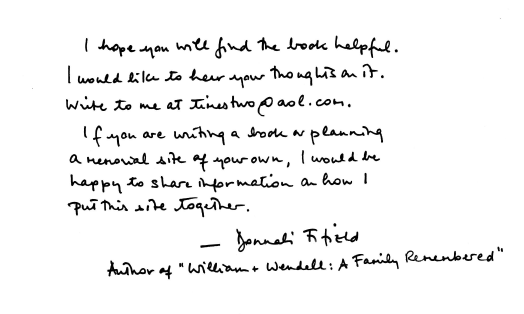 I hope you will find the book helpful.
I would like to hear your thoughts on it.
Write to me at tinestwo@aol.com.
If you are writing a book or planning
a memorial site of your own, I would be
happy to share information on how I
put this site together.
— Donnali Fifield
Author of "William + Wendell: A Family Remembered"